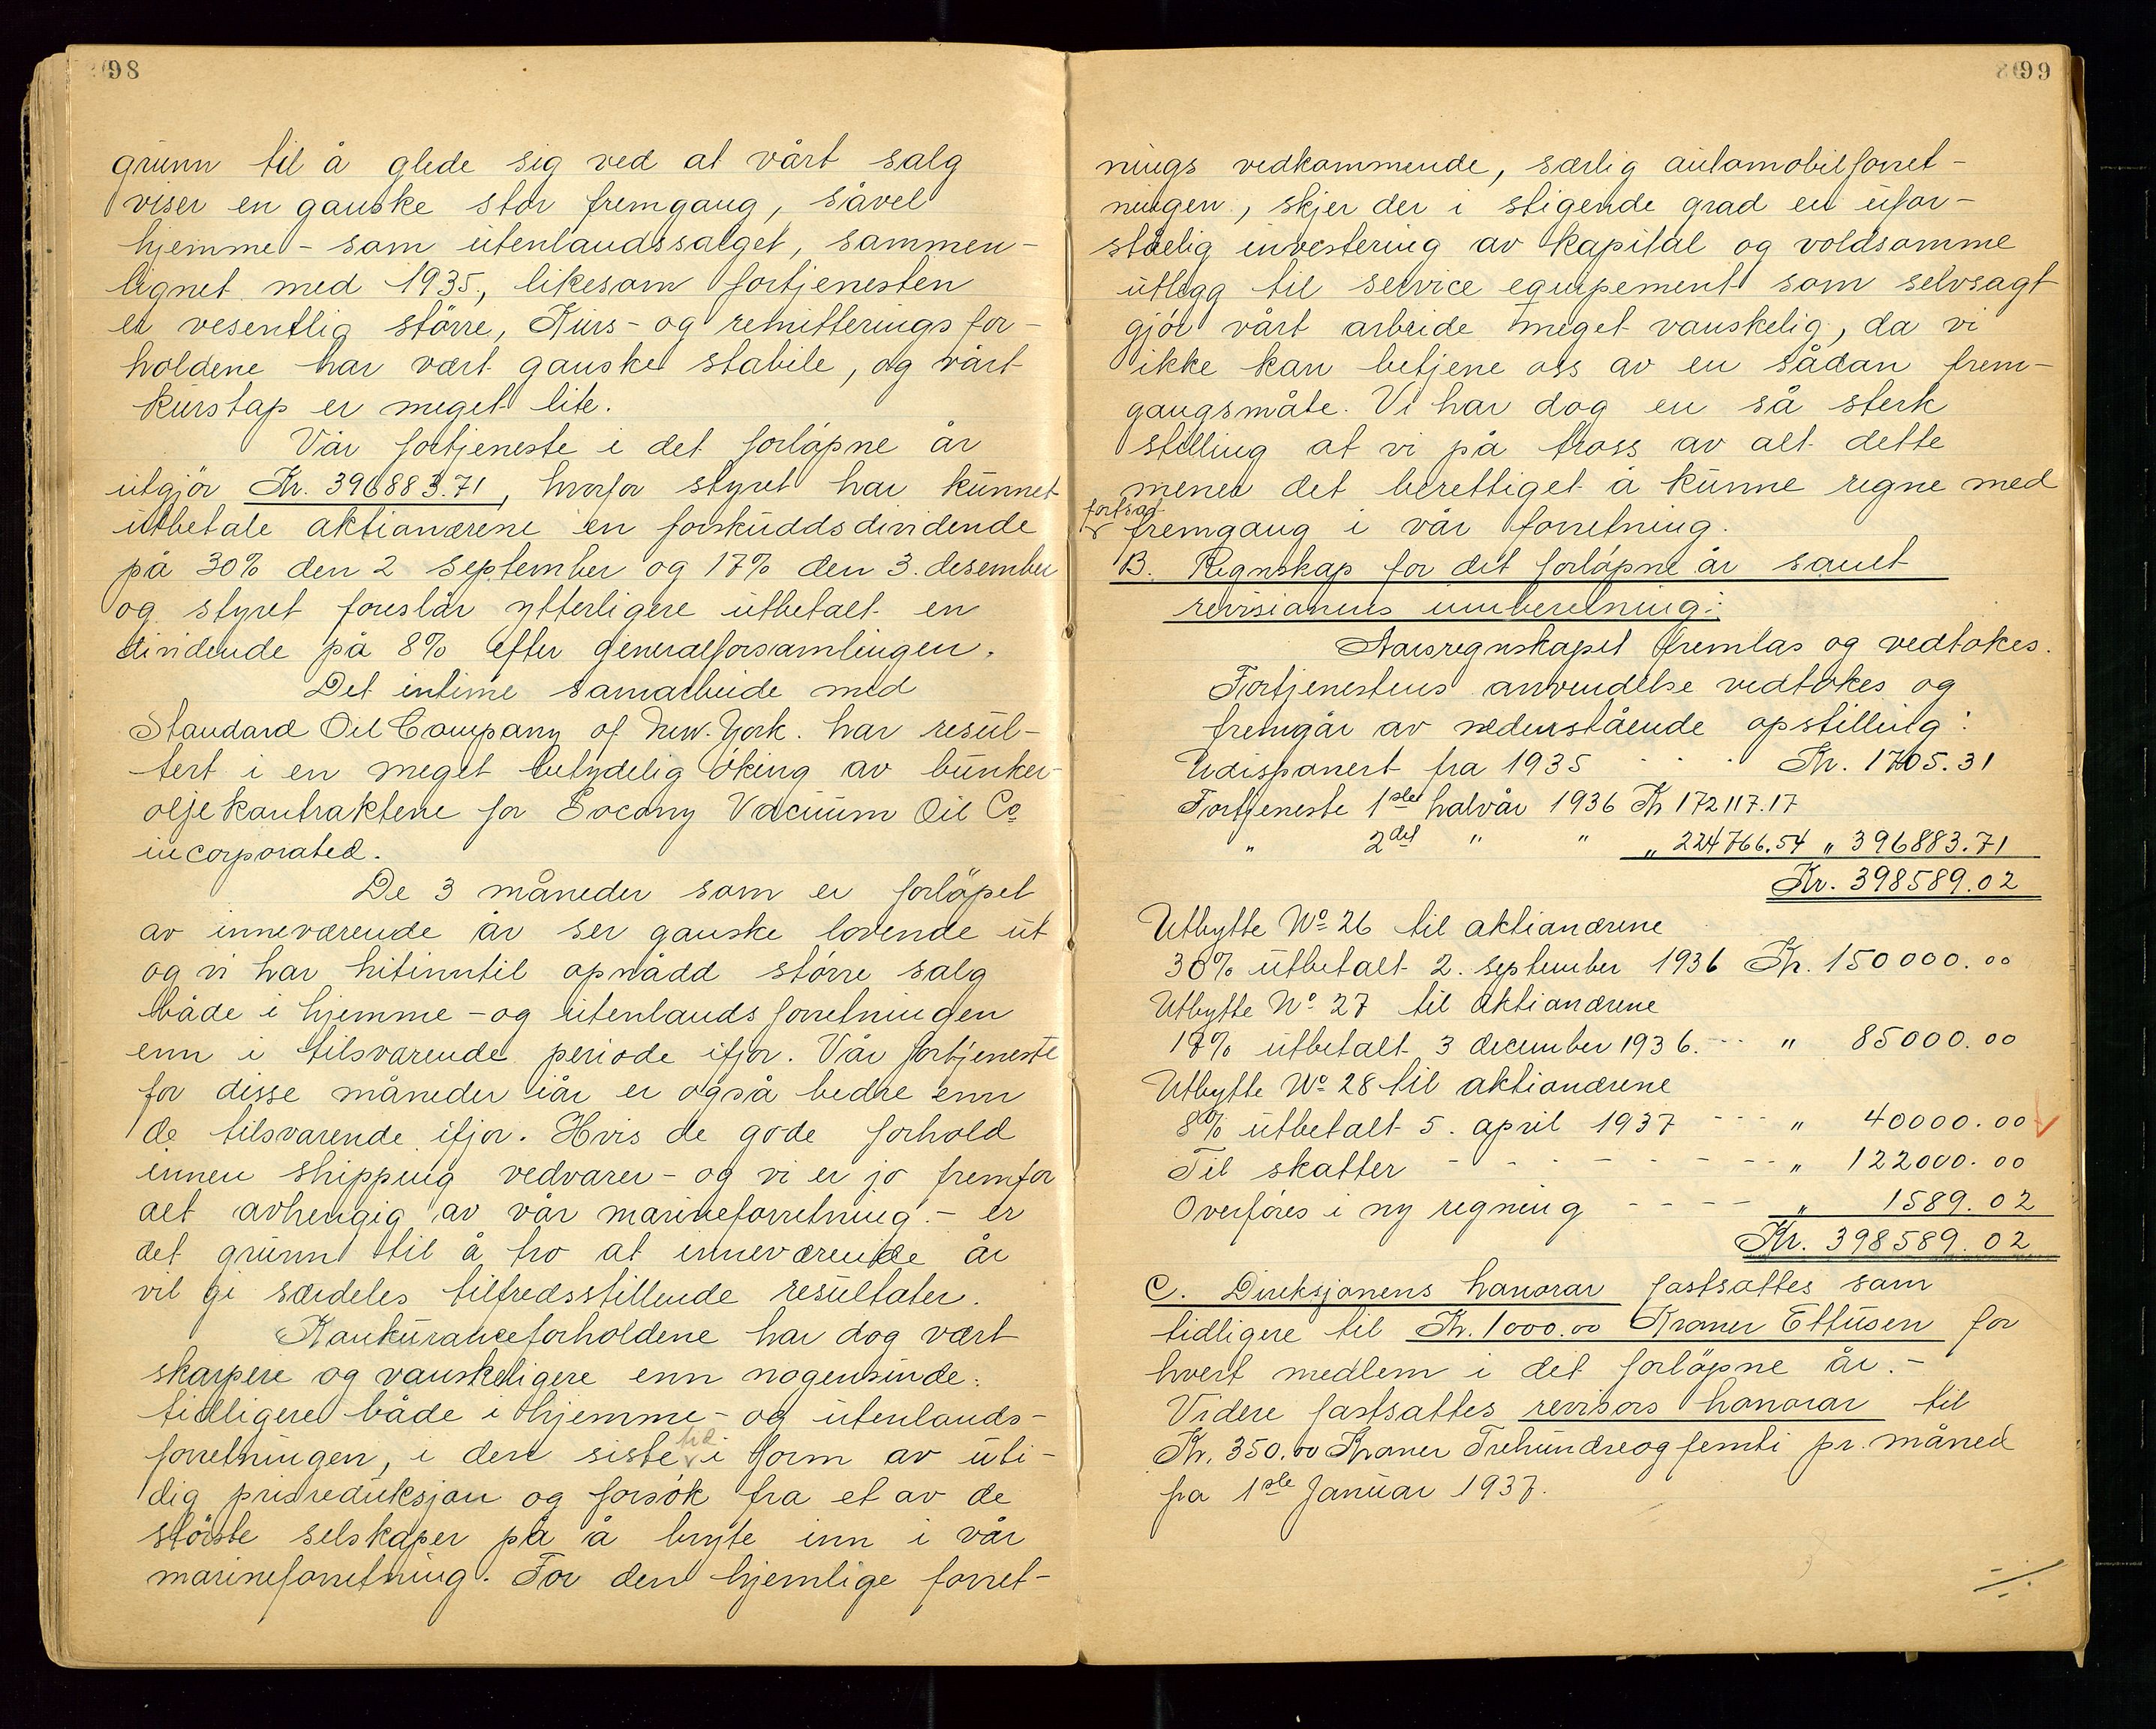 98
grunn til å glede sig ved at vårt salg
viser en ganske stor fremgang, såvel
hjemme- som utenlandssalget, sammen-
lignet med 1935, likesom fortjenesten
er vesentlig större, Kurs- og remitteringsfor-
holdene har vært ganske stabile, og vårt
kurstap er meget lite.
Vår fortjeneste i det forløpne år
utgjör Kr. 396883.71, hvorfor styret har kunnet
utbetale aktionærene en forskuddsdividende
på 30% den 2 september og 17% den 3. desember
og styret foreslår ytterligere utbetalt en
dividende på 8% efter generalforsamlingen.
Det intime samarbeide med
Standard Oil Company of New-York. har resul-
tert i en meget betydelig öking av bunker-
oljekontraktene for Socony Vacuum Oil Co
incorporated.
De 3 måneder som er forlöpet
av inneværende år ser ganske lovende ut
og vi har hitinntil opnådd större salg
både i hjemme- og utenlandsforretningen
enn i tilsvarende periode ifjor. Vår fortjeneste
for disse måneder iår er også bedre enn
de tilsvarende ifjor. Hvis de gode forhold
innen shipping vedvarer - og vi er jo fremfor
alt avhengig av vår marineforretning - er
det grunn til å tro at inneværende år
vil gi særdeles tilfredsstillende resultater.
Konkuranceforholdene har dog vært
skarpere og vanskeligere enn nogensinde
tidligere både i hjemme- og utenlands-
forretningen, i den siste i form av uti-
dig prisreduksjon og forsök fra et av de
störste selskaper på å bryte inn i vår
marineforretning. For den hjemlige forret-
99
nings vedkommende, særlig automobilforret-
ningen, skjer der i stigende grad en ufor-
ståelig investering av kapital og voldsomme
utlegg til service equipement som selvsagt
gjör vårt arbeide meget vanskelig, da vi
ikke kan betjene oss av en sådan frem-
gangsmåte. Vi har dog en så sterk
stilling at vi på tross av alt dette
mener det berettiget å kunne regne med
fortsat
fremgang i vår forretning.
B. Regnskap for det forlöpne år samt
revisionens innberetning:
Aarsregnskapet fremlas og vedtokes.
Fortjenestens anvendelse vedtokes og
fremgår av nedenstående opstilling:
Udisponert fra 1935 . . . Kr. 1705.31
Fortjeneste 1ste halvår 1936 Kr 172117.17
" 2det " " " 224766.54 " 396883.71
Kr. 398589.02
Utbytte No 26 til aktionærene
30% utbetalt 2. september 1936 Kr. 150000.00
Utbytte No 27 til aktionærene
17% utbetalt 3 december 1936. - - " 85000.00
Utbytte No 28 til aktionærene
8% utbetalt 5. april 1937 - - - " 40000.00
Til skatter - - - - - - - - " 122000.00
Overföres i ny regning - - - - " 1589.02
Kr. 398589.02
C. Direksjonens honorar fastsattes som
tidligere til Kr. 1000.00 Kroner Ettusen for
hvert medlem i det forlöpne år.-
Videre fastsattes revisors honorar til
Kr. 350.00 Kroner Trehundreogfemti pr. måned
fra 1ste Januar 1937.